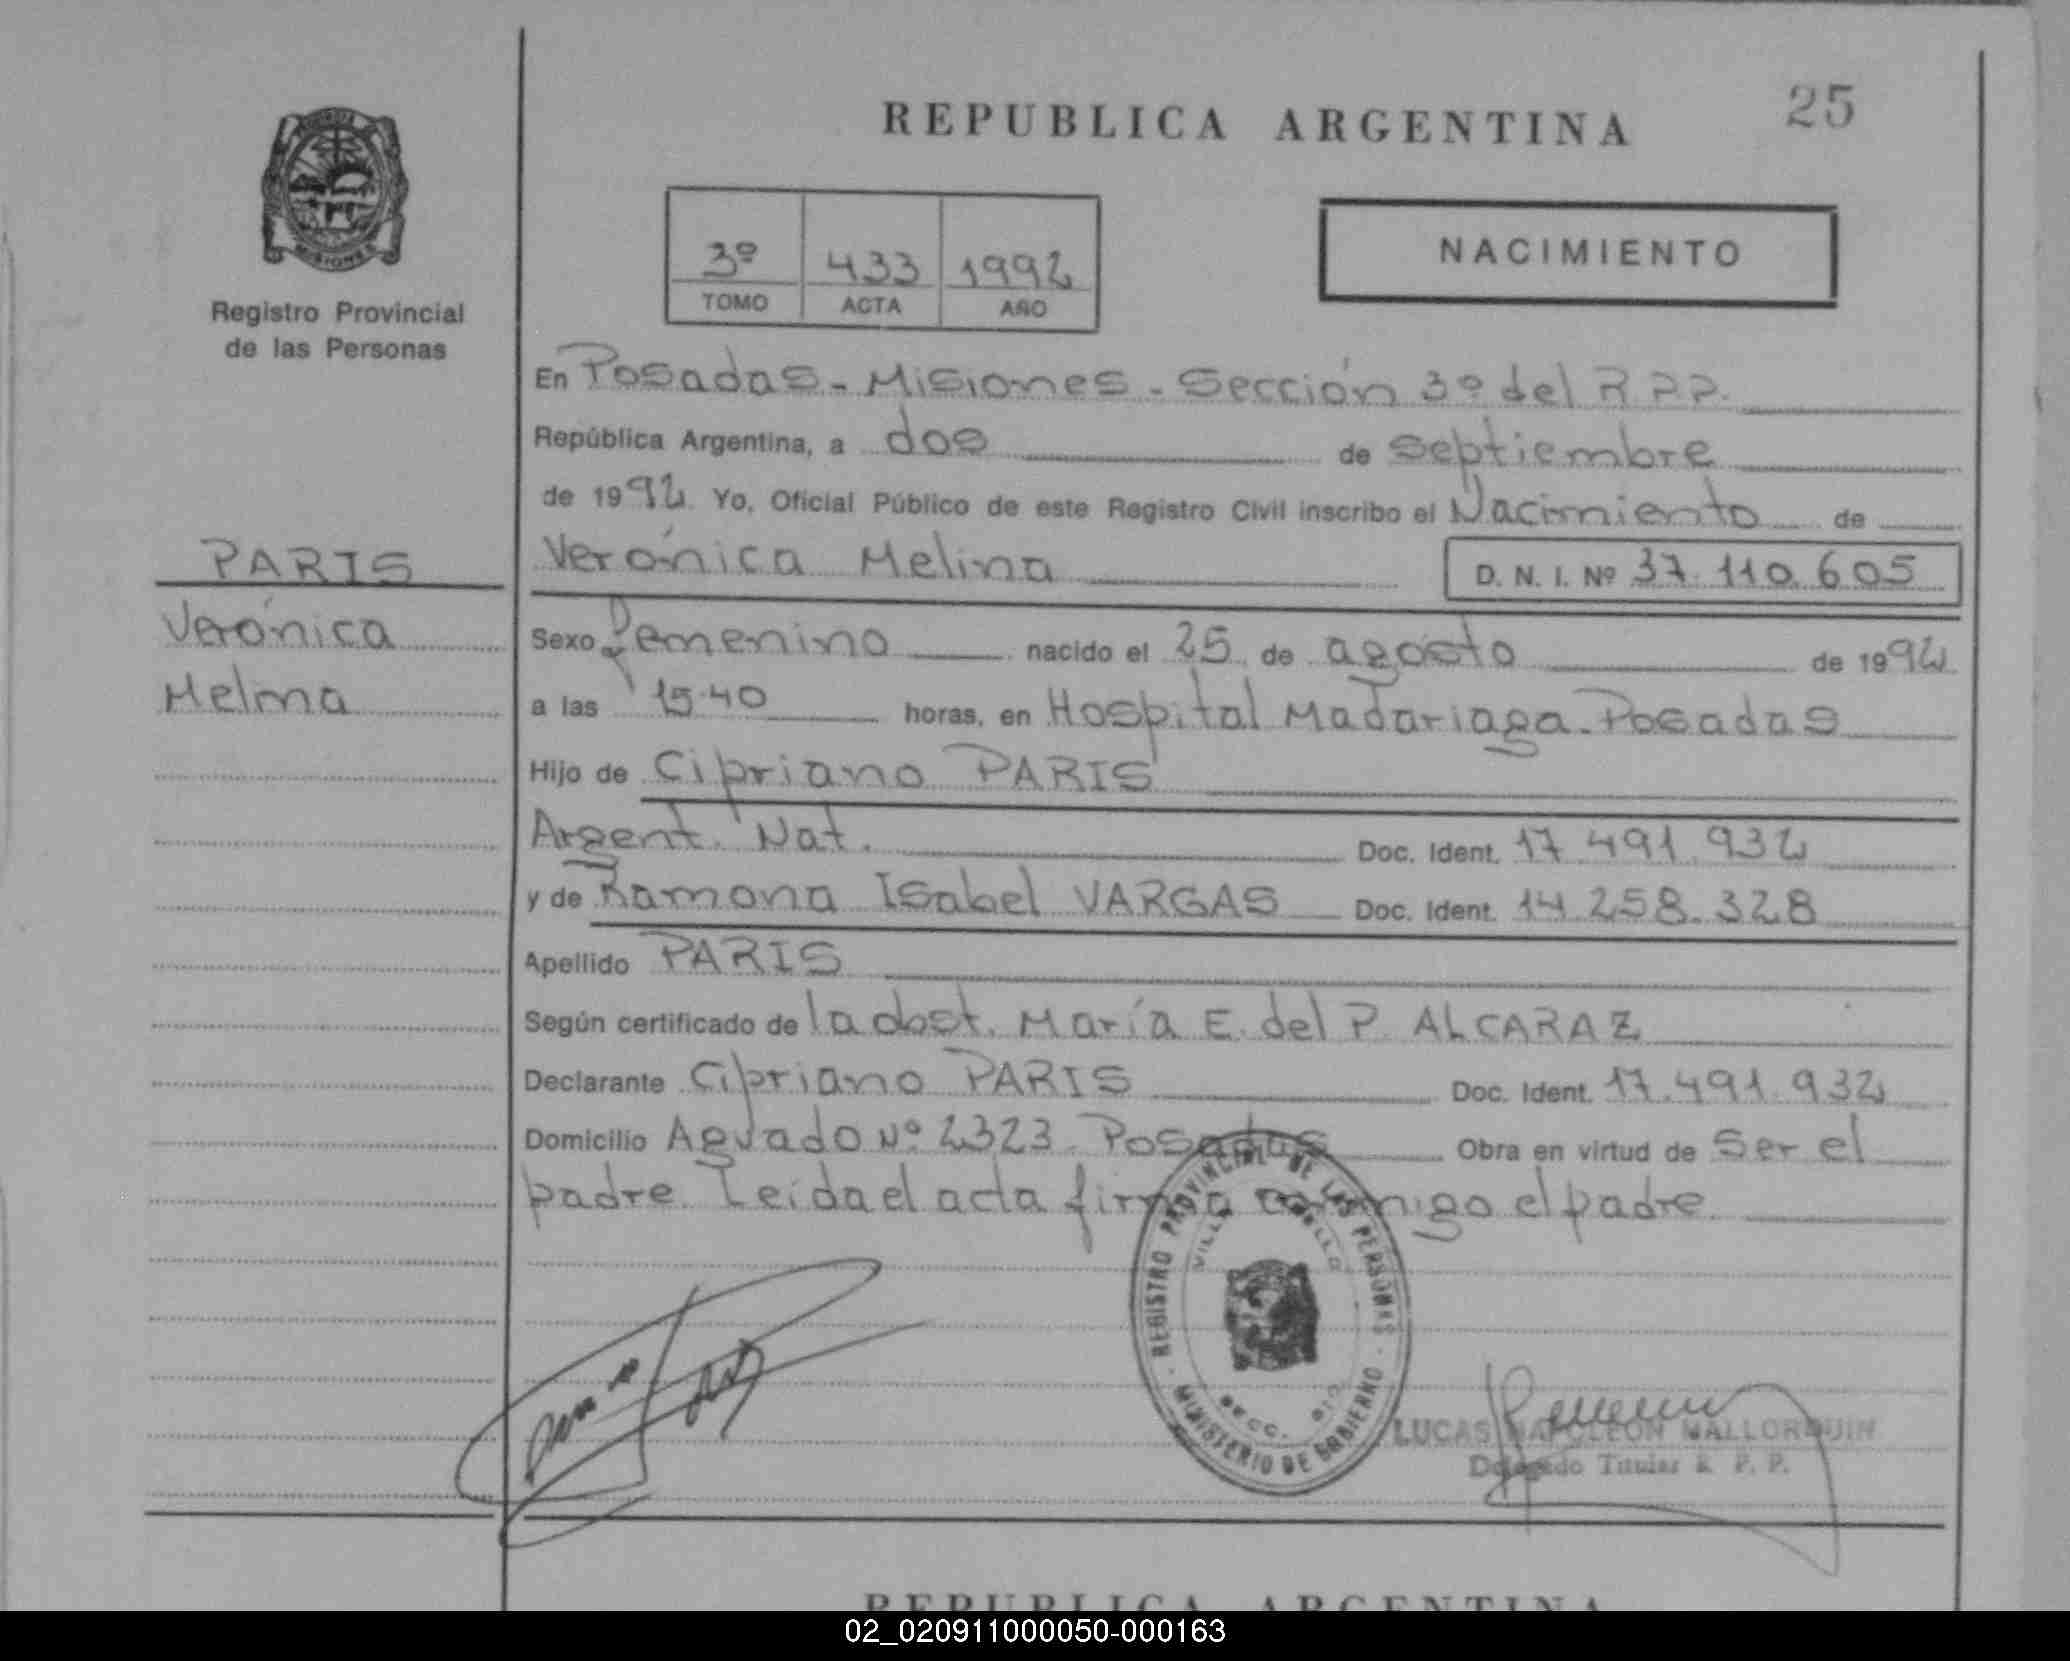 REPUBLICA ARGENTINA
25
3º 433 1992
TOMO ACTA AÑO
NACIMIENTO
PROVINCIA
MISIONES
Registro Provincial
de las Personas
PARIS
Verónica
Melina
En Posadas - Misiones - Sección 3º del R.P.P.
República Argentina, a dos de septiembre
de 1992 Yo, Oficial Público de este Registro Civil inscribo el Nacimiento de
Verónica Melina D. N. I. Nº 37.110.605
Sexo femenino nacido el 25 de agosto de 1992
a las 15.40 horas, en Hospital Madariaga - Posadas
Hijo de Cipriano PARIS
Argent. Nat. Doc. Ident. 17.491.932
y de Ramona Isabel VARGAS Doc. Ident. 14.258.328
Apellido PARIS
Según certificado de la obst. María E. del P. ALCARAZ
Declarante Cipriano PARIS Doc. Ident. 17.491.932
Domicilio Aguado Nº 2323 - Posadas Obra en virtud de Ser el
padre. Leída el acta firma conmigo el padre.
REGISTRO PROVINCIAL DE LAS PERSONAS
VILLA
SECC.
MINISTERIO DE GOBIERNO
LUCAS NAPOLEON MALLORQUIN
Delegado Titular R. P. P.
REPUBLICA ARGENTINA
02_020911000050-000163